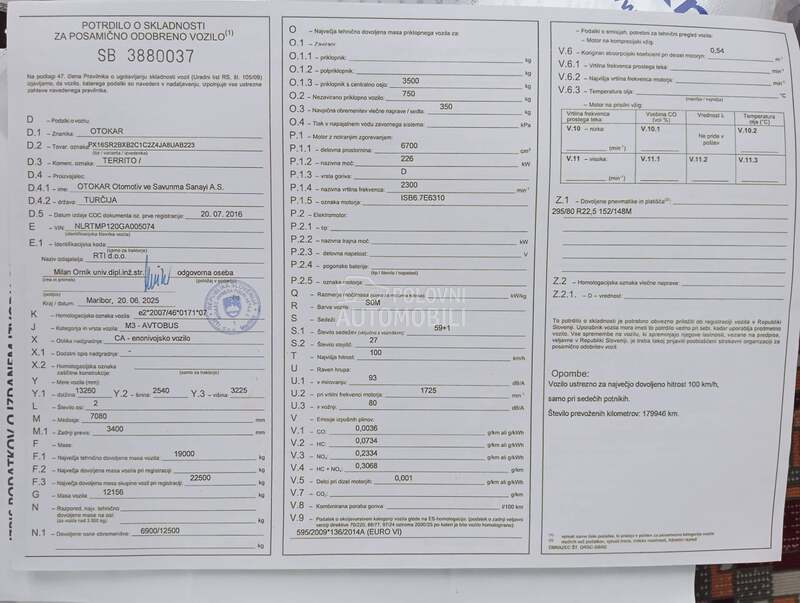 POTRDILO O SKLADNOSTI
ZA POSAMIČNO ODOBRENO VOZILO(1)
SB 3880037
Na podlagi 47. člena Pravilnika o ugotavljanju skladnosti vozil (Uradni list RS, št. 105/09)
izjavljamo, da vozilo, katerega podatki so navedeni v nadaljevanju, izpolnjuje vse ustrezne
zahteve navedenega pravilnika.
D – Podatki o vozilu
D.1 – Znamka: OTOKAR
D.2 – Tovar. oznaka: PX16SR2BXB2C1C2Z4JA8UAB223
(tip / varianta / izvedenka)
D.3 – Komerc. oznaka: TERRITO /
D.4 – Proizvajalec:
D.4.1 – ime: OTOKAR Otomotiv ve Savunma Sanayi A.S.
D.4.2 – država: TURČIJA
D.5 – Datum izdaje COC dokumenta oz. prve registracije: 20. 07. 2016
E – VIN: NLRTMP120GA005074
(identifikacijska številka vozila)
E.1 – Identifikacijska koda:
(samo za traktorje)
Naziv izdajatelja: RTI d.o.o.
Milan Ornik univ.dipl.inž.str. odgovorna oseba
(ime in priimek) (položaj v podjetju)
(podpis)
Kraj / datum: Maribor, 20. 06. 2025
K – Homologacijska oznaka vozila: e2*2007/46*0171*07
J – Kategorija in vrsta vozila: M3 - AVTOBUS
X – Oblika nadgradnje: CA - enonivojsko vozilo
X.1 – Dodatni opis nadgradnje: -
X.2 – Homologacijska oznaka
zaščitne konstrukcije:
(samo za traktorje)
Y – Mere vozila (mm):
Y.1 – dolžina: 13260 Y.2 – širina: 2540 Y.3 – višina: 3225
L – Število osi: 2
M – Medosje: 7080 mm
M.1 – Zadnji previs: 3400 mm
F – Mase:
F.1 – Največja tehnično dovoljena masa vozila: 19000 kg
F.2 – Največja dovoljena masa vozila pri registraciji: kg
F.3 – Največja dovoljena masa skupine vozil pri registraciji: 22500 kg
G – Masa vozila: 12156 kg
N – Razpored. najv. tehnično
dovoljene mase na osi:
(za vozila nad 3.500 kg)
N.1 – Dovoljene osne obremenitve: 6900/12500 kg
O – Največja tehnično dovoljena masa priklopnega vozila za:
O.1 – Zaviran:
O.1.1 – priklopnik: kg
O.1.2 – polpriklopnik: kg
O.1.3 – priklopnik s centralno osjo: 3500 kg
O.2 – Nezavirano priklopno vozilo: 750 kg
O.3 – Navpična obremenitev vlečne naprave / sedla: 350 kg
O.4 – Tlak v napajalnem vodu zavornega sistema: kPa
P.1 – Motor z notranjim zgorevanjem:
P.1.1 – delovna prostornina: 6700 cm³
P.1.2 – nazivna moč: 226 kW
P.1.3 – vrsta goriva: D
P.1.4 – nazivna vrtilna frekvenca: 2300
P.1.5 – oznaka motorja: ISB6.7E6310
P.2 – Elektromotor:
P.2.1 – tip:
P.2.2 – nazivna trajna moč: kW
P.2.3 – delovna napetost: V
P.2.4 – pogonsko baterijo:
P.2.5 – oznaka motorja:
Q – Razmerje moč/masa kW/kg
R – Barva vozila: S0M
POLOVNI
AUTOMOBILI
S – Sedeži:
S.1 – Število sedežev (vključno z voznikom): 59+1
S.2 – Število stojišč: 27
T – Največja hitrost: 100 km/h
U – Raven hrupa:
U.1 – v mirovanju: 93 dB/A
U.2 – pri vrtilni frekvenci motorja: 1725 min⁻¹
U.3 – v vožnji: 80 dB/A
V – Emisija izpušnih plinov:
V.1 – CO: 0,0036 g/km ali g/kWh
V.2 – HC: 0,0734 g/km ali g/kWh
V.3 – NOx: 0,2334 g/km ali g/kWh
V.4 – HC + NOx: 0,3068 g/km
V.5 – Delci pri dizel motorjih: 0,001 g/km ali g/kWh
V.7 – CO2: g/km
V.8 – Kombinirana poraba goriva: l/100 km
V.9 – Podatek o okoljevarstveni kategoriji vozila glede na ES-homologacijo:
595/2009*136/2014A (EURO VI)
– Podatki o emisijah, potrebni za tehnični pregled vozila:
– Motor na kompresijski vžig:
V.6 – Korigiran absorpcijski koeficient pri deset motorjih: 0,54 m⁻¹
V.6.1 – Vrtilna frekvenca prostega teka: min⁻¹
V.6.2 – Najvišja vrtilna frekvenca motorja: min⁻¹
V.6.3 – Temperatura olja: °C
– Motor na prisilni vžig:
Vrtilna frekvenca prostega teka Vsebina CO (vol %) Vrednost λ Temperatura olja (°C)
V.10 – nizka: (min⁻¹) V.10.1 Ne pride v poštev V.10.2
V.11 – visoka: (min⁻¹) V.11.1 V.11.2 V.11.3
Z.1 – Dovoljene pnevmatike in platišča(2):
295/80 R22,5 152/148M
Z.2 – Homologacijska oznaka vlečne naprave:
Z.2.1. – D – vrednost:
To potrdilo o skladnosti je potrebno obvezno priložiti ob registraciji vozila v Republiki
Sloveniji. Uporabnik vozila mora imeti to potrdilo vedno pri sebi, kadar uporablja predmetno
vozilo.
Opombe:
Vozilo ustrezno za največjo dovoljeno hitrost 100 km/h,
samo pri sedečih potnikih.
Število prevoženih kilometrov: 179946 km.